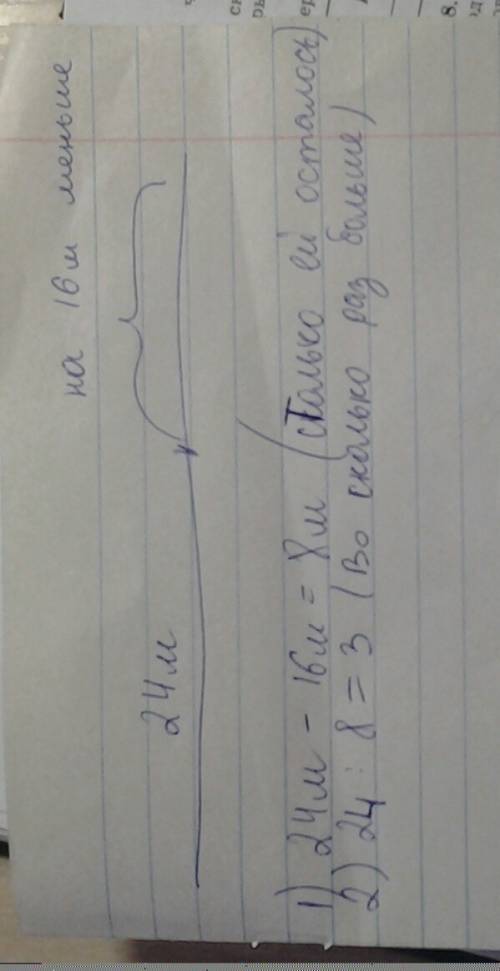 на 16м меньше
24м
1) 24м - 16м = 8м (столько ей осталось)
2) 24 : 8 = 3 (Во сколько раз больше)
8.